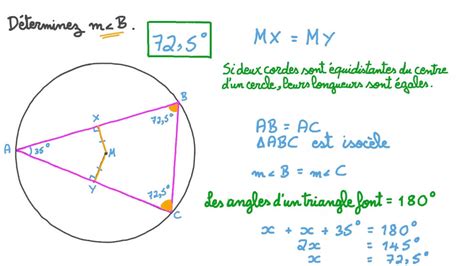 Déterminez m∠B.
72,5°
MX = MY
Si deux cordes sont équidistantes du centre
d'un cercle, leurs longueurs sont égales.
AB = AC
△ABC est isocèle
m∠B = m∠C
Les angles d'un triangle font = 180°
x + x + 35° = 180°
2x = 145°
x = 72,5°
A
35°
X
B
72,5°
M
Y
72,5°
C